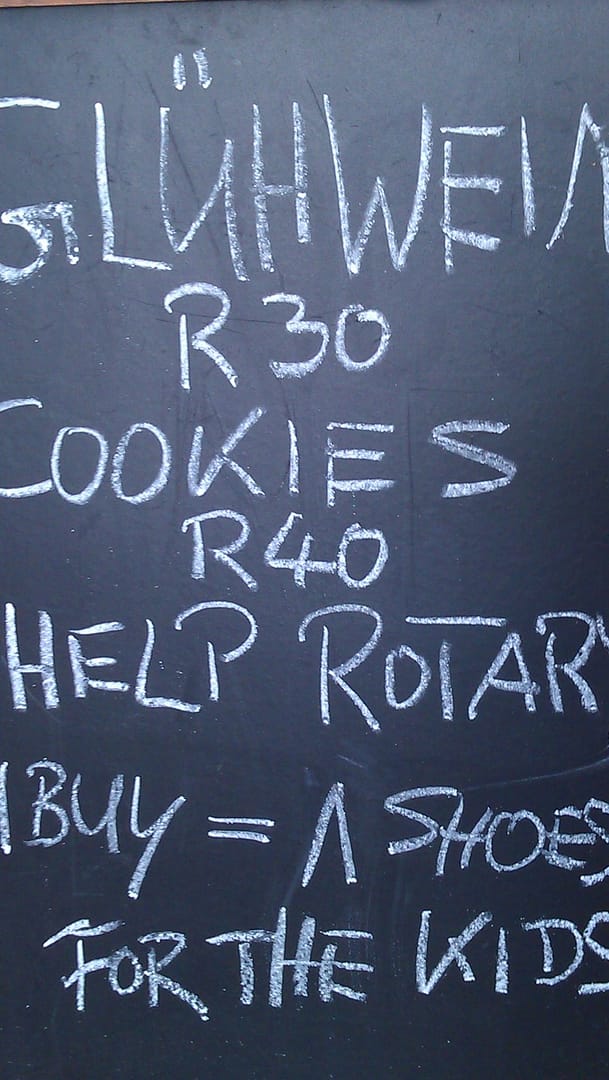 GLÜHWEIN
R30
COOKIES
R40
HELP ROTARY
1 BUY = 1 SHOES
FOR THE KIDS